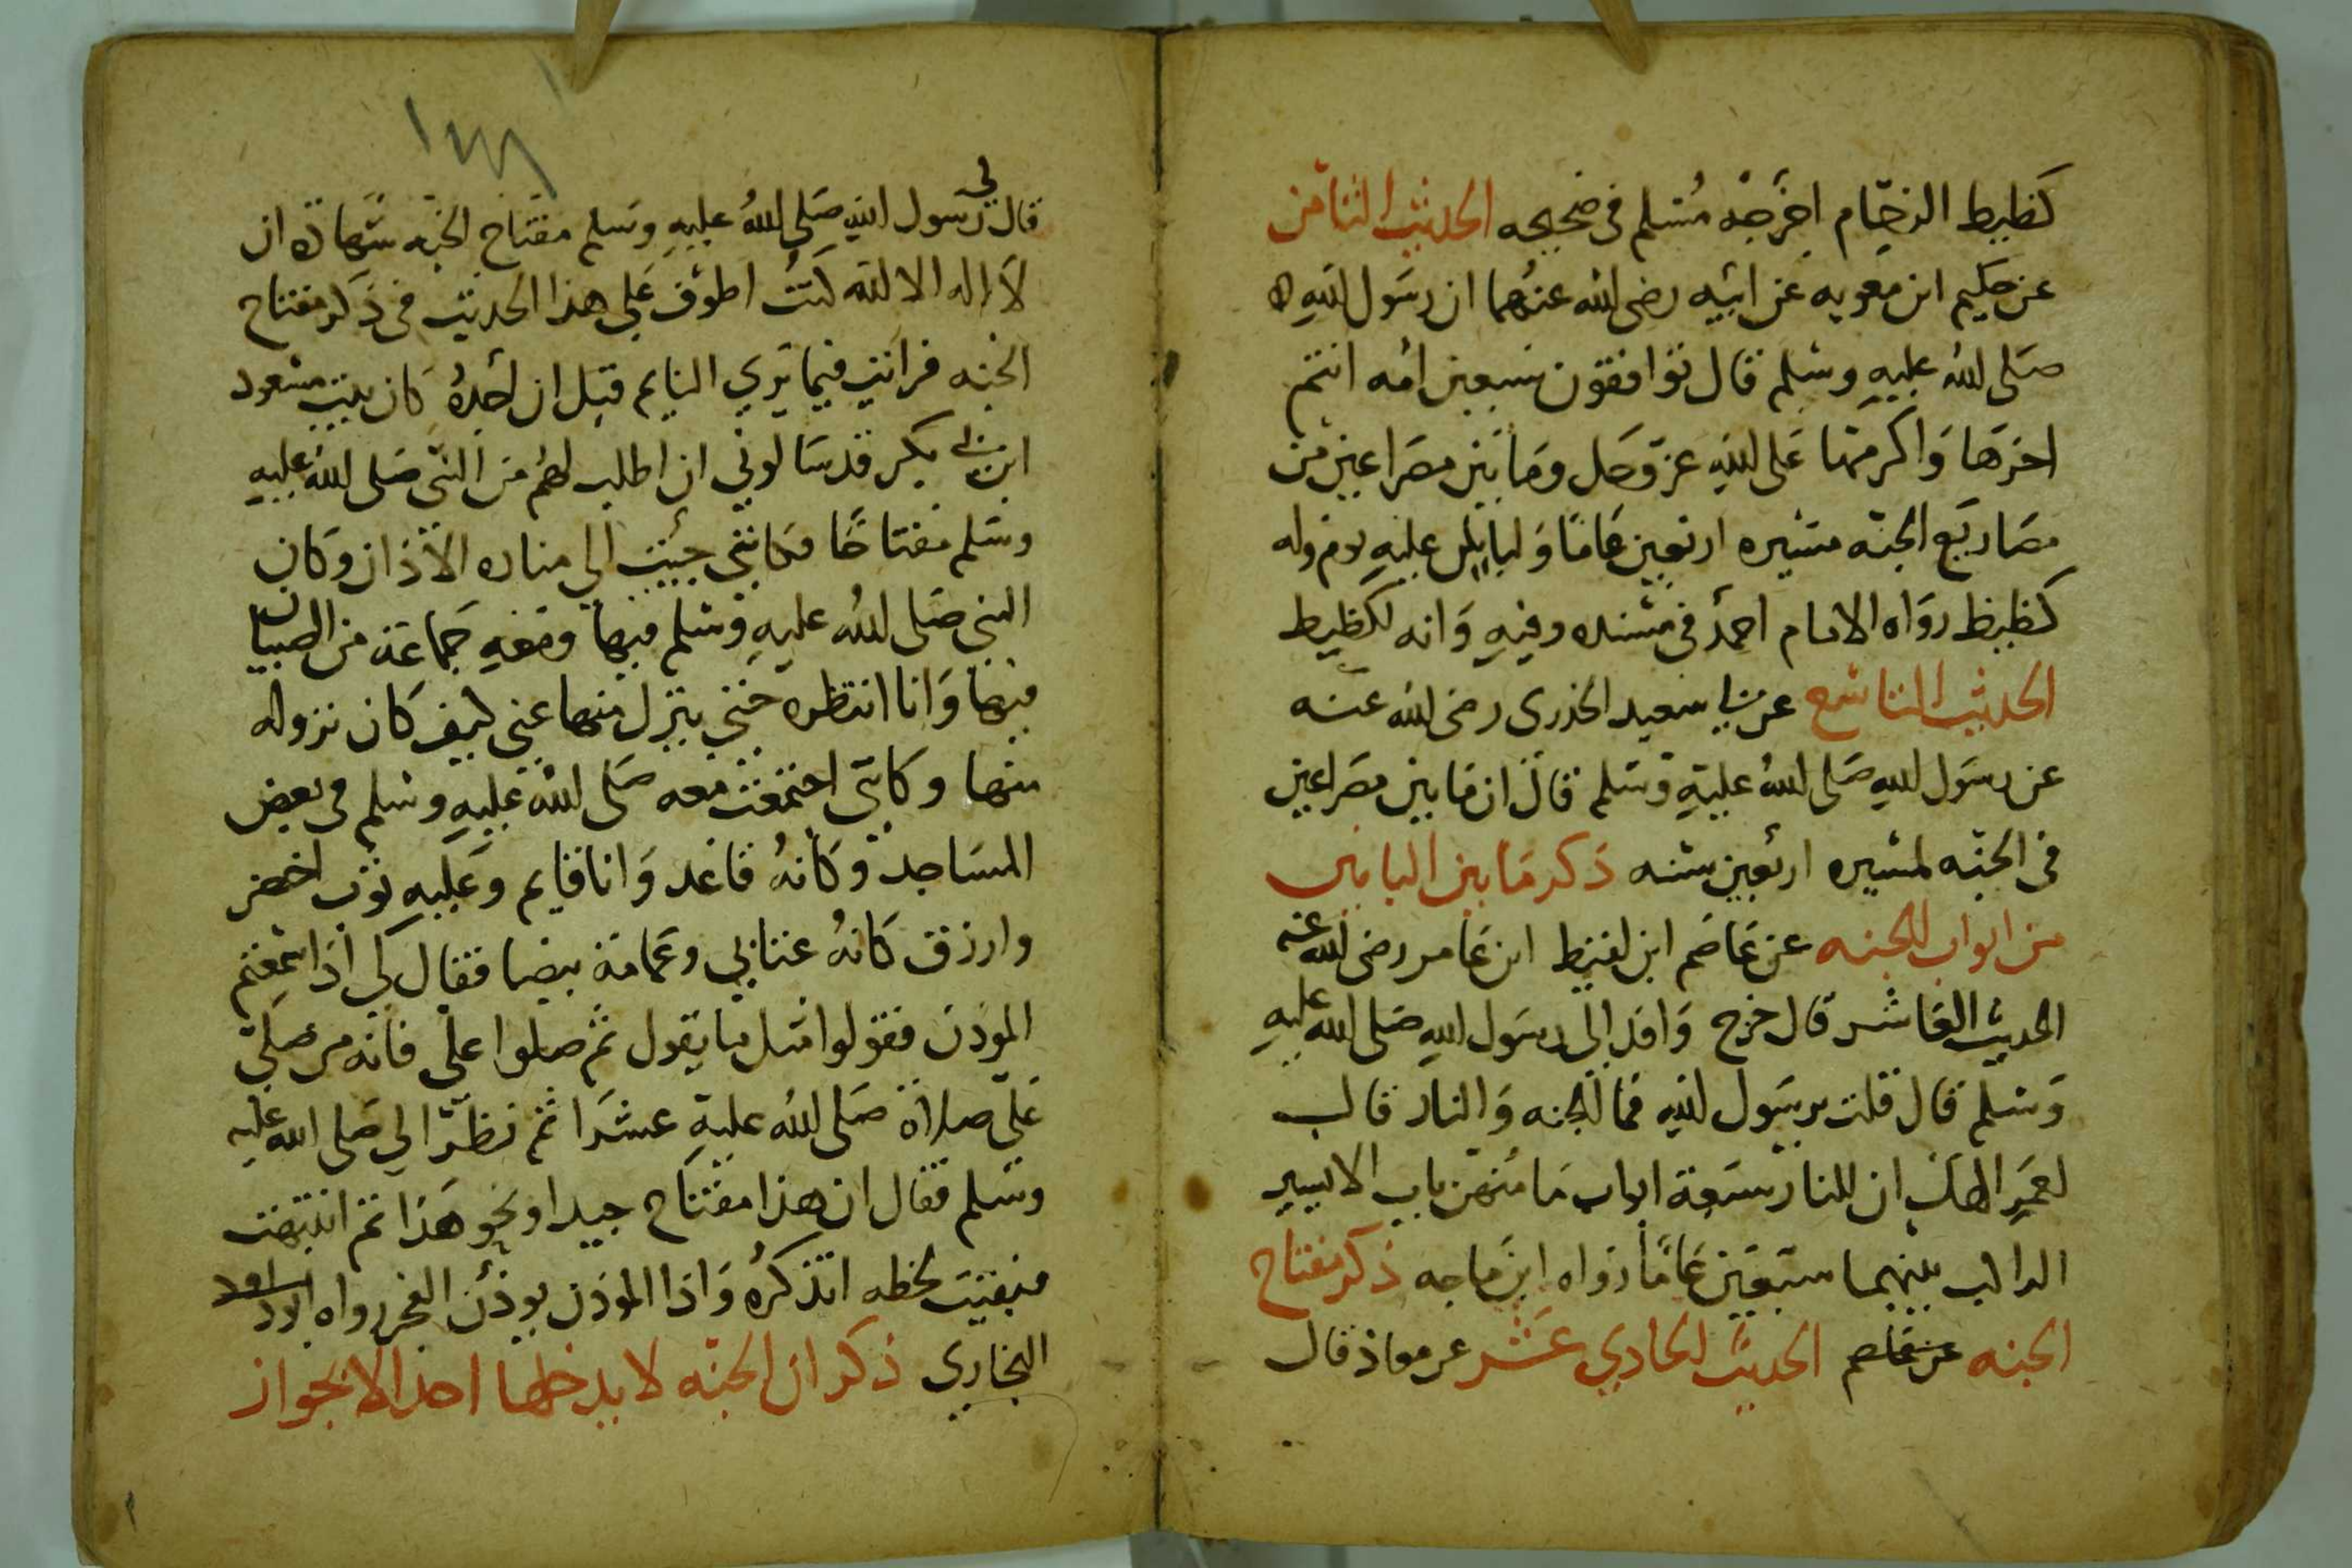 كظيظ الزحام اخرجه مسلم في صحيحه الحديث الثامن
عن حكيم ابن معويه عن ابيه رضى الله عنهما ان رسول الله
صلى الله عليه وسلم قال توافقون سبعين امه انتم
اخرها واكرمها على الله عز وجل وما بين مصراعين من
مصاريع الجنه مسيره اربعين عاما ولياتين عليه يوم وله
كظيظ رواه الامام احمد في مسنده وفيه وانه لكظيظ
الحديث التاسع عن ابي سعيد الخدرى رضى الله عنه
عن رسول الله صلى الله عليه وسلم قال ان ما بين مصراعين
في الجنه لمسيره اربعين سنه ذكر ما بين البابين
من ابواب الجنه عن عاصم ابن لقيط ابن عامر رضى الله عنه
الحديث العاشر قال خرج وافد الى رسول الله صلى الله عليه
وسلم قال قلت يرسول الله فما الجنه والنار قال
لعمر الهك ان للنار سبعة ابواب ما منهن باب الا يسير
الراكب بينهما سبعين عاما رواه ابن ماجه ذكر مفتاح
الجنه عن عاصم الحديث الحادي عشر عن معاذ قال
قال لي رسول الله صلى الله عليه وسلم مفتاح الجنه شهادة ان
لا اله الا الله كنت اطوف على هذا الحديث في ذكر مفتاح
الجنه فرايت فيما يري النايم قبل ان اجده كان بنت مسعود
ابن ابي بكر قد سالوني ان اطلب لهم من النبى صلى الله عليه
وسلم مفتاحا فكانني جيت الي مناره الاذان وكان
النبى صلى الله عليه وسلم فيها ومعه جماعة من الصبيان
فيها وانا انتظره حتي ينزل منها عني كيف كان نزوله
منها وكاني اجتمعت معه صلى الله عليه وسلم في بعض
المساجد وكانه قاعد وانا قايم وعليه ثوب اخضر
وازرق كانه عتابي وعمامة بيضا فقال لي اذا سمعتم
الموذن فقولوا مثل ما يقول ثم صلوا علي فانه من صلي
علي صلاة صلى الله عليه عشرا ثم نظر الي صلى الله عليه
وسلم فقال ان هذا مفتاح جيد او نحو هذا ثم انتبهت
فبقيت لحظه اتذكره واذا الموذن يوذن الفجر رواه ابو داود
البخاري ذكر ان الجنه لا يدخلها احد الا بجواز